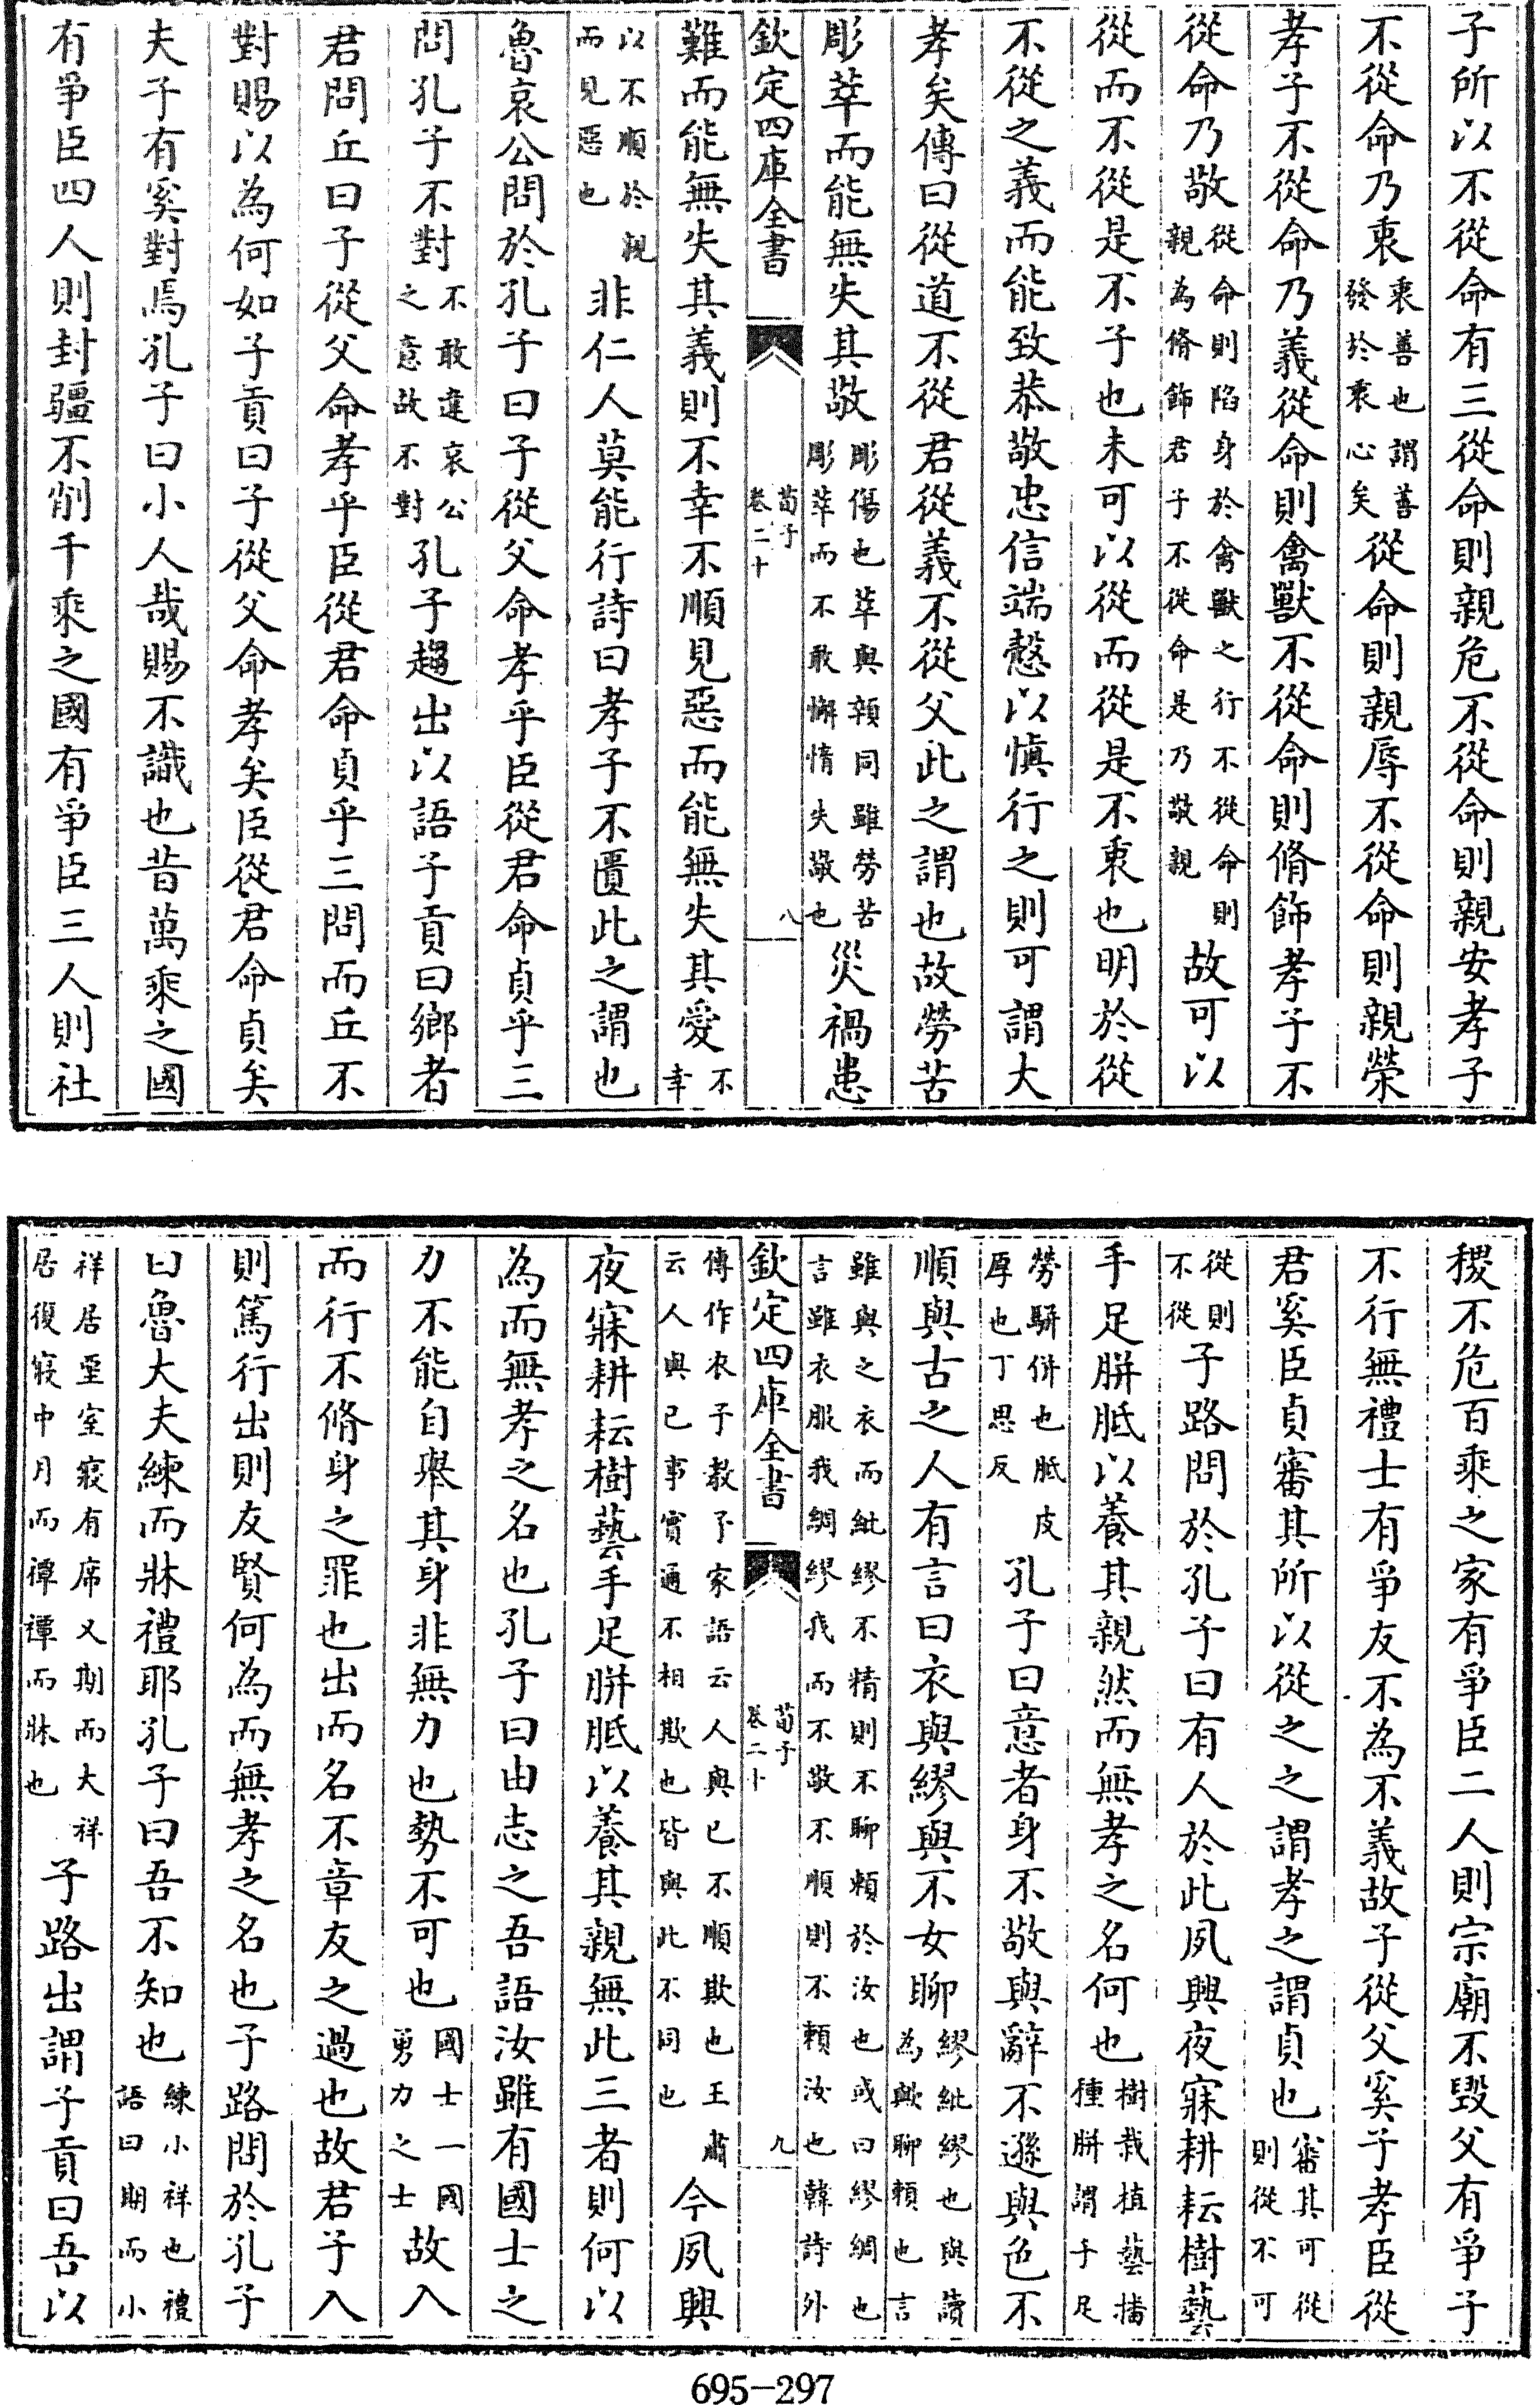 子所以不從命有三從命則親危不從命則親安孝子
不從命乃衷衷善也謂善發於衷心矣從命則親辱不從命則親榮
孝子不從命乃義從命則禽獸不從命則脩飾孝子不
從命乃敬從命則陷身於禽獸之行不從命則親為脩飾君子不從命是乃敬親故可以
從而不從是不子也未可以從而從是不衷也明於從
不從之義而能致恭敬忠信端慤以慎行之則可謂大
孝矣傳曰從道不從君從義不從父此之謂也故勞苦
彫萃而能無失其敬彫傷也萃與顇同雖勞苦彫萃而不敢懈惰失敬也災禍患
欽定四庫全書 荀子卷二十 八
難而能無失其義則不幸不順見惡而能無失其愛不幸
以不順於親而見惡也非仁人莫能行詩曰孝子不匱此之謂也
魯哀公問於孔子曰子從父命孝乎臣從君命貞乎三
問孔子不對不敢違哀公之意故不對孔子趨出以語子貢曰鄉者
君問丘曰子從父命孝乎臣從君命貞乎三問而丘不
對賜以為何如子貢曰子從父命孝矣臣從君命貞矣
夫子有奚對焉孔子曰小人哉賜不識也昔萬乘之國
有爭臣四人則封疆不削千乘之國有爭臣三人則社
稷不危百乘之家有爭臣二人則宗廟不毀父有爭子
不行無禮士有爭友不為不義故子從父奚子孝臣從
君奚臣貞審其所以從之之謂孝之謂貞也審其可從則從不可
從則不從子路問於孔子曰有人於此夙興夜寐耕耘樹藝
手足胼胝以養其親然而無孝之名何也樹栽植藝播種胼謂手足
勞駢併也胝皮厚也丁思反孔子曰意者身不敬與辭不遜與色不
順與古之人有言曰衣與繆與不女聊繆紕繆也與讀為歟聊賴也言
雖與之衣而紕繆不精則不聊賴於汝也或曰繆綢也言雖衣服我綢繆我而不敬不順則不賴汝也韓詩外
欽定四庫全書 荀子卷二十 九
傳作衣予教予家語云人與已不順欺也王肅云人與已事實通不相欺也皆與此不同也今夙興
夜寐耕耘樹藝手足胼胝以養其親無此三者則何以
為而無孝之名也孔子曰由志之吾語汝雖有國士之
力不能自舉其身非無力也勢不可也國士一國勇力之士故入
而行不脩身之罪也出而名不章友之過也故君子入
則篤行出則友賢何為而無孝之名也子路問於孔子
曰魯大夫練而牀禮耶孔子曰吾不知也練小祥也禮語曰期而小
祥居堊室寢有席又期而大祥居復寢中月而禫禫而牀也子路出謂子貢曰吾以
695-297